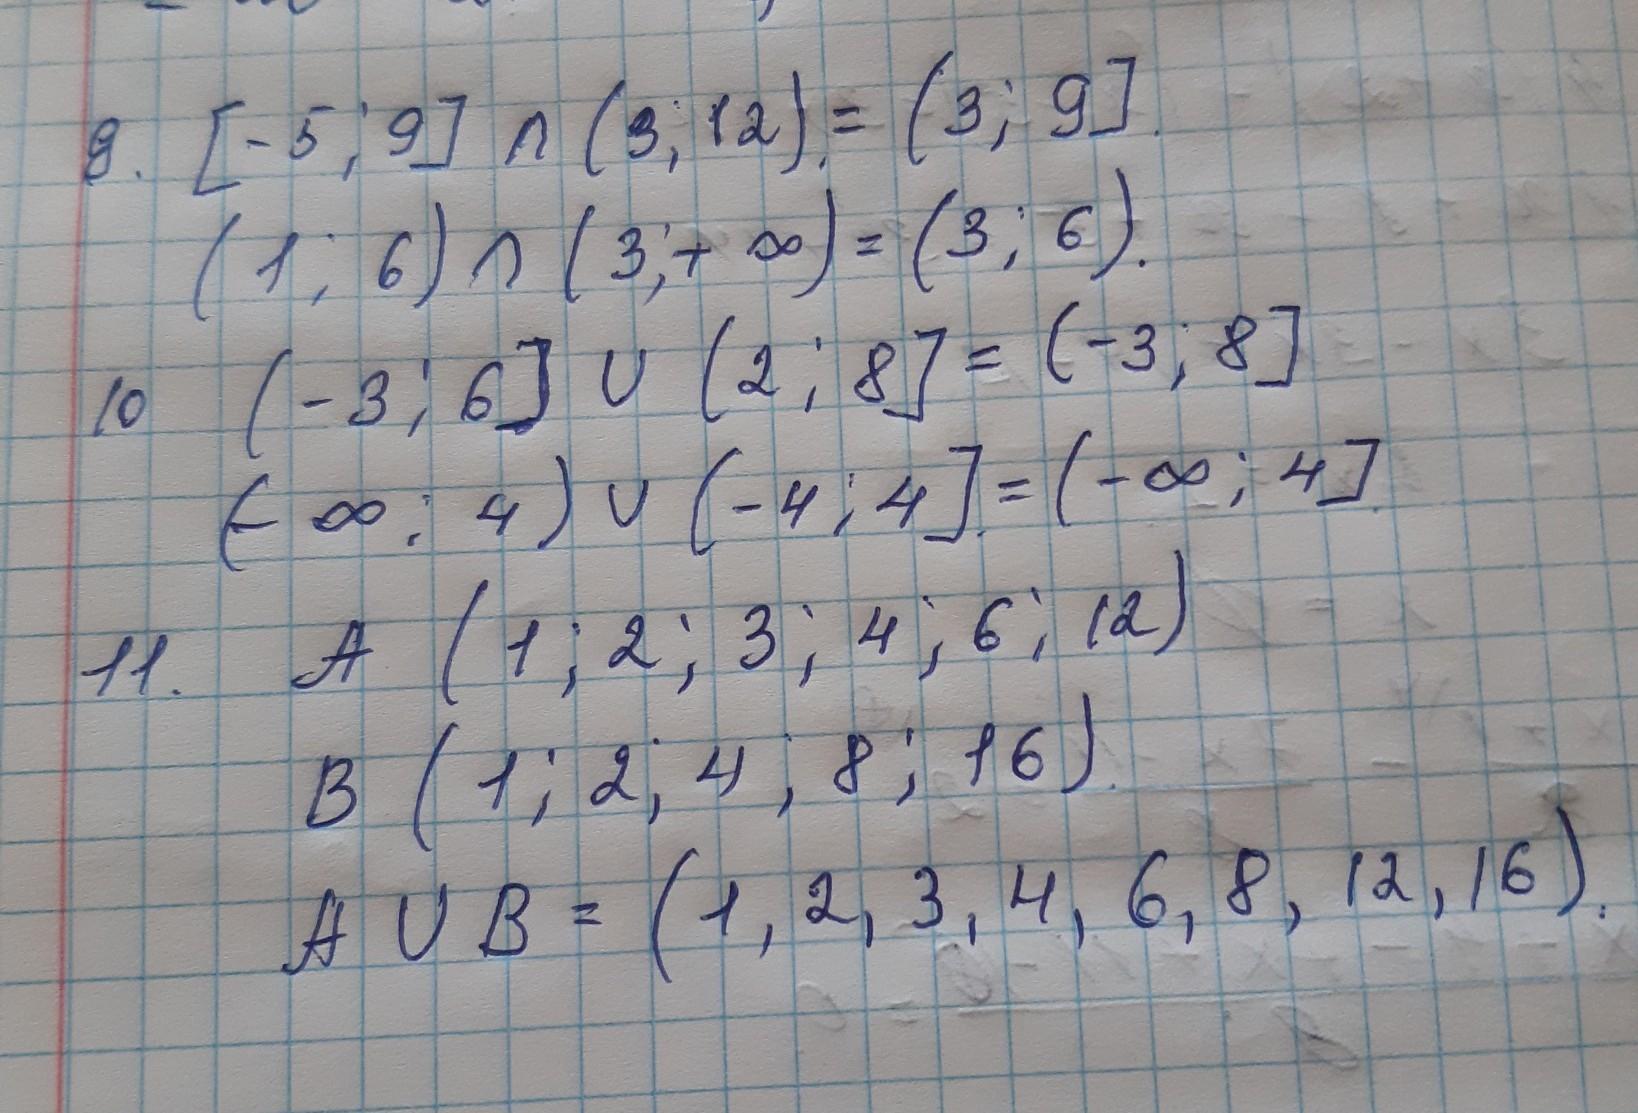 9. [-5; 9] ∩ (3; 12). = (3; 9].
(1; 6) ∩ (3; + ∞) = (3; 6).
10 (-3; 6] ∪ (2; 8] = (-3; 8]
(- ∞; 4) ∪ (-4; 4]. = (-∞; 4].
11. A (1; 2; 3; 4; 6; 12)
B (1; 2; 4; 8; 16).
A ∪ B = (1, 2, 3, 4, 6, 8, 12, 16).